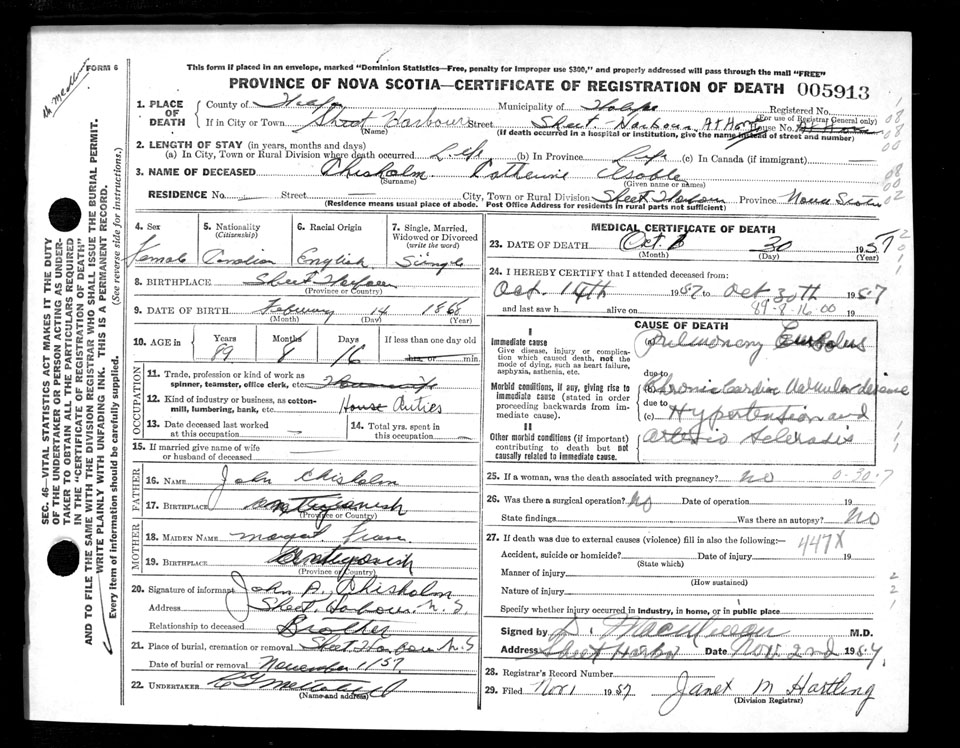 FORM 6
This form if placed in an envelope, marked "Dominion Statistics—Free, penalty for improper use $300," and properly addressed will pass through the mail "FREE"
PROVINCE OF NOVA SCOTIA—CERTIFICATE OF REGISTRATION OF DEATH 005913
1. PLACE OF DEATH
County of Halifax Municipality of Halifax Registered No.
(For use of Registrar General only)
If in City or Town Sheet Harbour Street Sheet Harbour At Home House No. At Home
(Name) (If death occurred in a hospital or institution, give the name instead of street and number)
2. LENGTH OF STAY (in years, months and days)
(a) In City, Town or Rural Division where death occurred Life (b) In Province Life (c) In Canada (if immigrant)
3. NAME OF DECEASED Chisholm Catherine
(Surname) (Given name or names)
RESIDENCE No. Street City, Town or Rural Division Sheet Harbour Province Nova Scotia
(Residence means usual place of abode. Post Office Address for residents in rural parts not sufficient)
4. Sex Female
5. Nationality (Citizenship) Canadian
6. Racial Origin English
7. Single, Married, Widowed or Divorced (write the word) Single
8. BIRTHPLACE Sheet Harbour
(Province or Country)
9. DATE OF BIRTH February 14 1868
(Month) (Day) (Year)
10. AGE Years Months Days If less than one day
89 8 16 hrs. or min.
OCCUPATION
11. Trade, profession or kind of work as spinner, teamster, office clerk, etc.
12. Kind of industry or business, as cotton-mill, lumbering, bank, etc. House duties
13. Date deceased last worked at this occupation
14. Total yrs. spent in this occupation
15. If married give name of wife or husband of deceased
FATHER
16. NAME John Chisholm
17. BIRTHPLACE Antigonish
(Province or Country)
MOTHER
18. MAIDEN NAME
19. BIRTHPLACE Antigonish
(Province or Country)
20. Signature of informant John A. Chisholm
Address Sheet Harbour N.S.
Relationship to deceased Brother
21. Place of burial, cremation or removal Sheet Harbour N.S
Date of burial or removal November 1/57
22. UNDERTAKER
(Name and address)
MEDICAL CERTIFICATE OF DEATH
23. DATE OF DEATH Oct 30 1957
(Month) (Day) (Year)
24. I HEREBY CERTIFY that I attended deceased from:
Oct. 14th 1957 to Oct 30th 1957
and last saw h alive on 19
89-8-16 00
CAUSE OF DEATH
I
Immediate cause
Give disease, injury or complication which caused death, not the mode of dying, such as heart failure, asphyxia, asthenia, etc.
Pulmonary Embolus
due to
Morbid conditions, if any, giving rise to immediate cause (stated in order proceeding backwards from immediate cause).
Chronic Cardio Vascular disease
due to
(c) Hypertension and
II
Other morbid conditions (if important) contributing to death but not causally related to immediate cause.
arterio Sclerosis
25. If a woman, was the death associated with pregnancy? No 0-30-7
26. Was there a surgical operation? No Date of operation 19
State findings Was there an autopsy? No
27. If death was due to external causes (violence) fill in also the following:— 447X
Accident, suicide or homicide? Date of injury 19
(State which)
Manner of injury
(How sustained)
Nature of injury
Specify whether injury occurred in industry, in home, or in public place
Signed by M.D.
Address Sheet Harbor Date Nov. 2nd 1957.
28. Registrar's Record Number
29. Filed Nov 1 1957 Janet M Hartling
(Division Registrar)
SEC. 46—VITAL STATISTICS ACT MAKES IT THE DUTY OF THE UNDERTAKER OR PERSON ACTING AS UNDERTAKER TO OBTAIN ALL THE PARTICULARS REQUIRED IN THE "CERTIFICATE OF REGISTRATION OF DEATH" AND TO FILE THE SAME WITH THE DIVISION REGISTRAR WHO SHALL ISSUE THE BURIAL PERMIT.
WRITE PLAINLY WITH UNFADING INK. THIS IS A PERMANENT RECORD.
Every item of information should be carefully supplied. (See reverse side for instructions.)